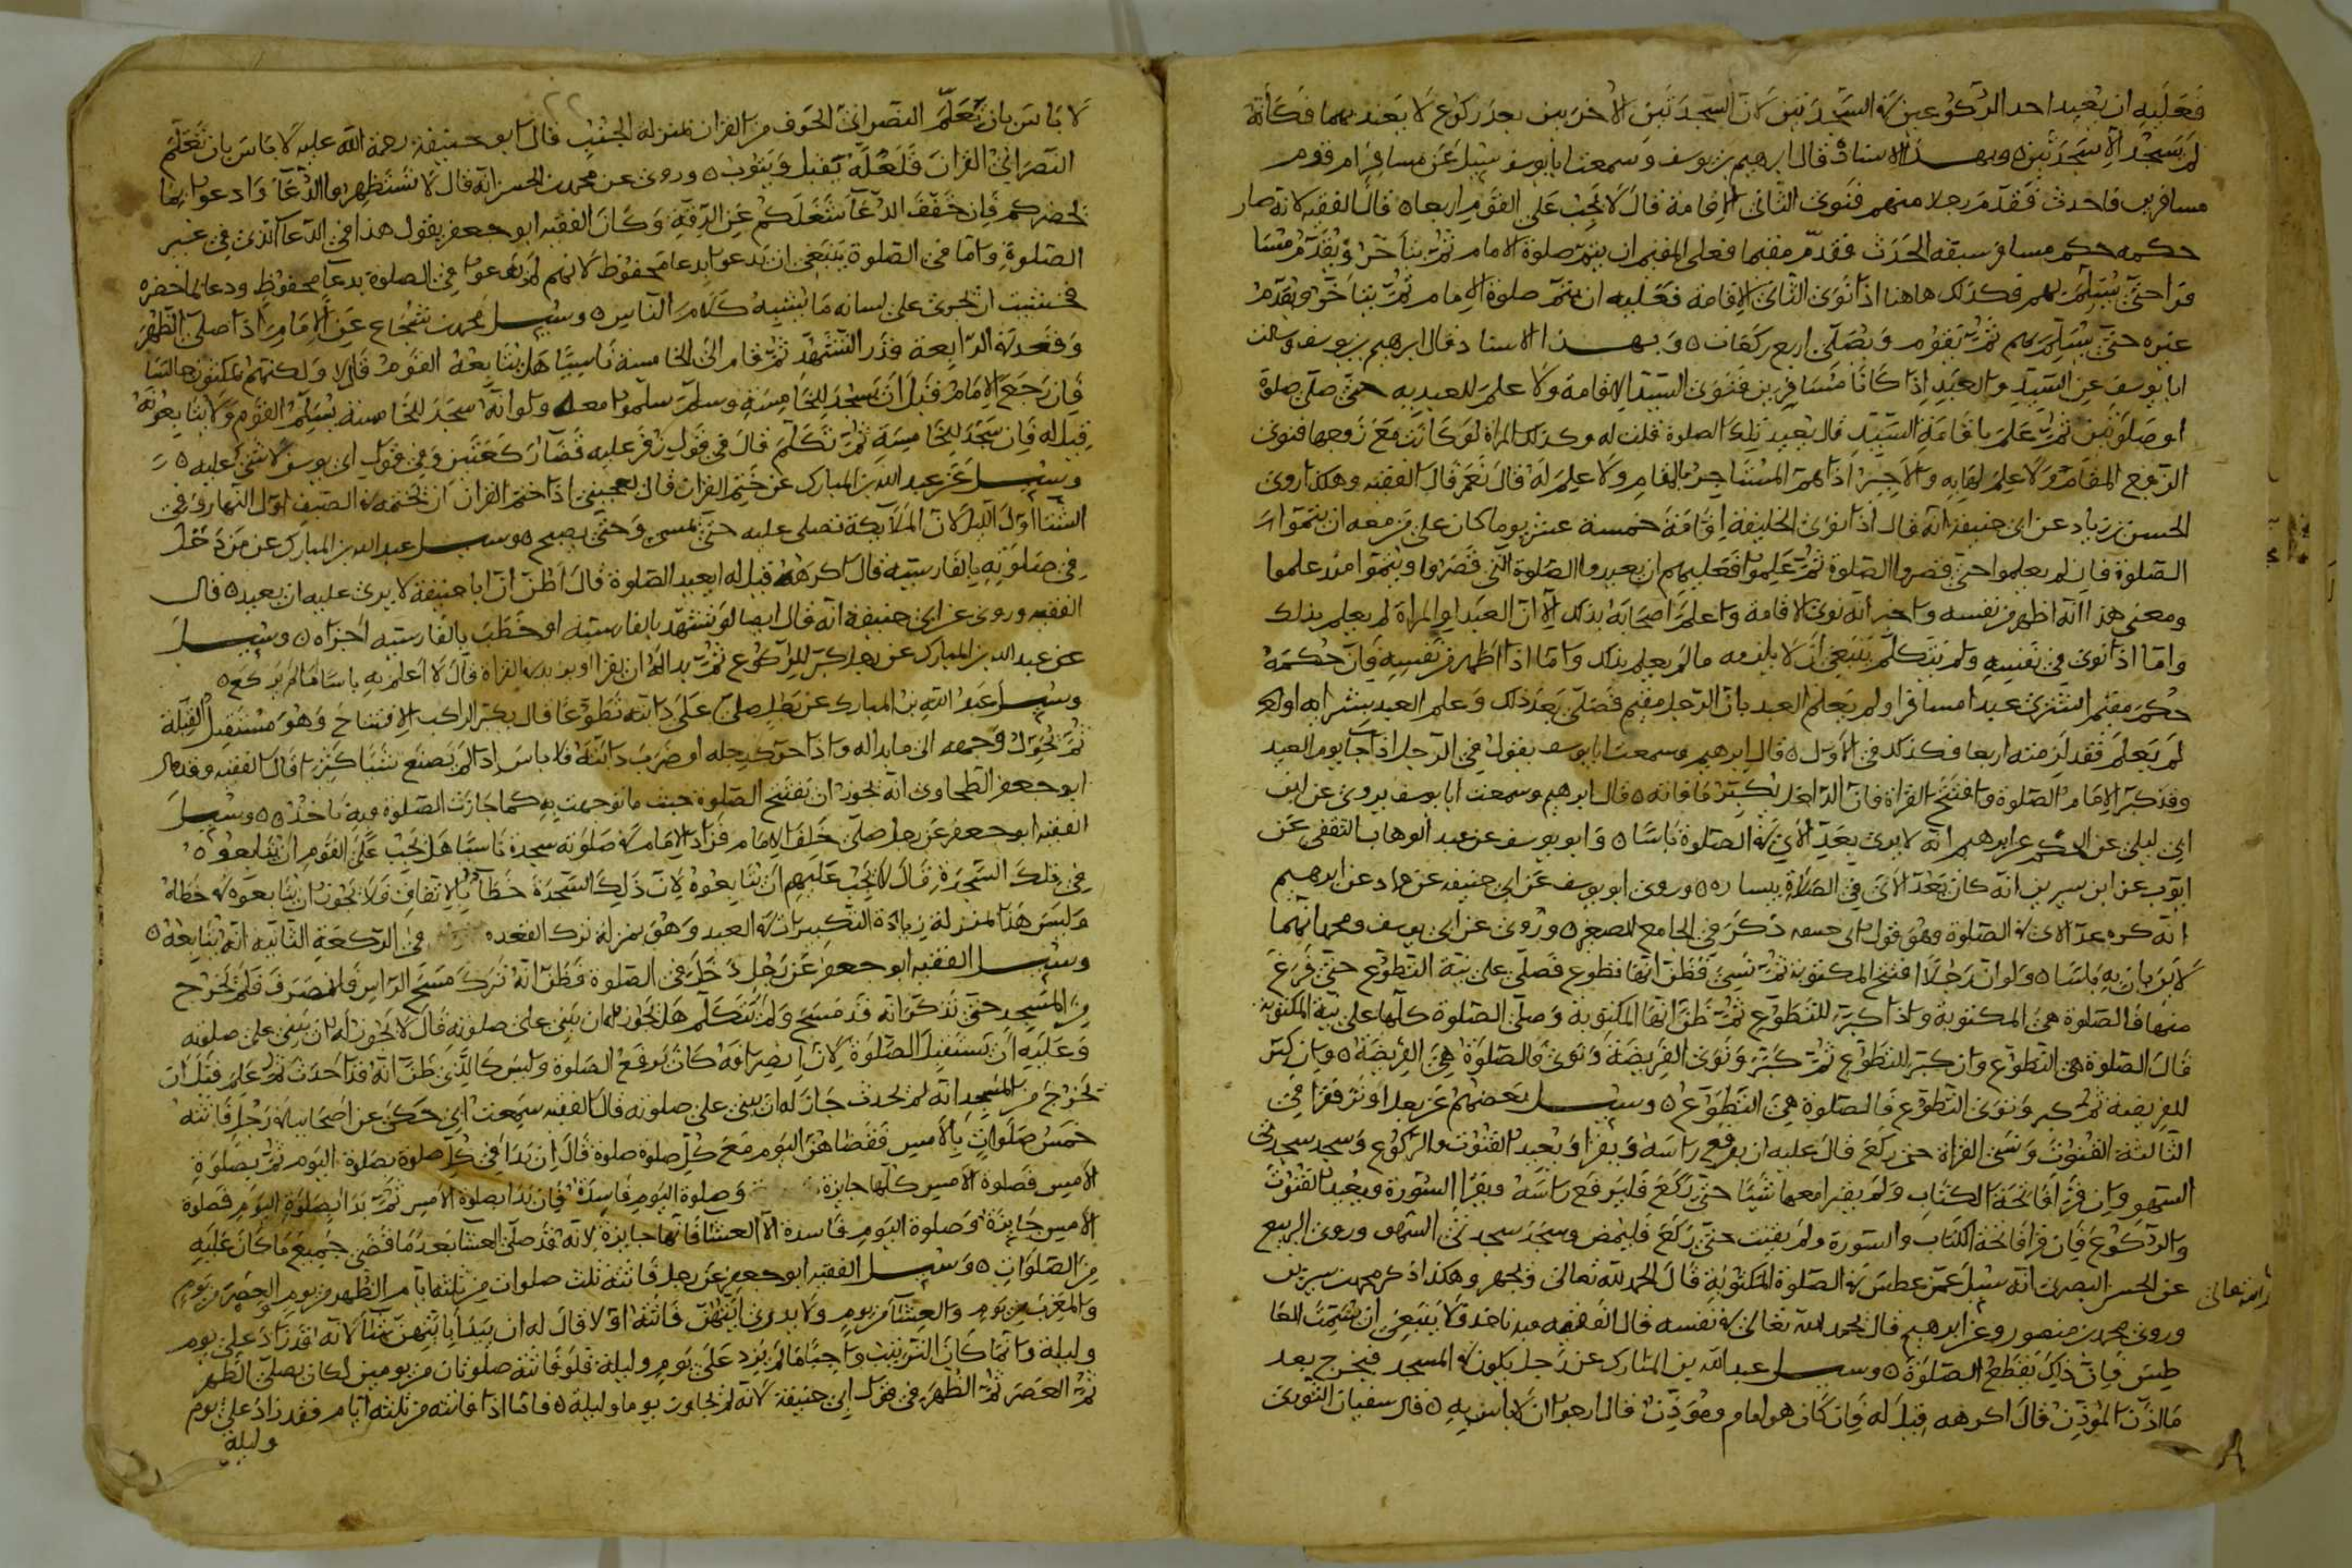 فَعَلَيه ان يُعيد احد الركوعين والسجدتين لانّ السجدتين الاخريين بعد ركوع لا يعتد بهما فكأنه
لم يسجد الا سجدتين ٥ وبهذا الاسناد قال ابرهيم بن يوسف وسمعت ابا يوسف سئل عن مسافر ام قوم
مسافرين فاحدث فقدم رجلا منهم فنوى الثاني الاقامة قال لا يجب على القوم اربعا ٥ قال الفقيه لانه صار
حكمه حكم مسافر سبقه الحدث فقدم مقيما فعلى المقيم ان يتم صلوة الامام ثم يتأخر ويقدم مسا
فرا حتى يسلم بهم فكذلك هاهنا اذا نوى الثاني الاقامة فعليه ان يتم صلوة الامام ثم يتأخر ويقدم
غيره حتى يسلم بهم ثم يقوم ويصلي اربع ركعات ٥ وبهذا الاسناد قال ابرهيم بن يوسف وسالت
ابا يوسف عن السيد والعبد اذا كانا مسافرين فنوى السيد الاقامة ولا علم للعبد به حتى صلى صلوة
او صلوتين ثم علم باقامة السيد قال يعيد تلك الصلوة قلت له وكذلك المراة لو كانت مع زوجها فنوى
الزوج المقام ولا علم لها به والاجير اذا لم المستاجر بالمقام ولا علم له قال نعم قال الفقيه وهكذا روى
الحسن بن زياد عن ابي حنيفة انه قال اذا نوى الخليفة اقامة خمسة عشر يوما كان على من معه ان يتموا
الصلوة فان لم يعلموا حتى قصروا الصلوة ثم علموا فعليهم ان يعيدوا الصلوة التي قصروا ويتموا منذ علموا
ومعنى هذا انه اظهر من نفسه واخبر انه نوى الاقامة واعلم اصحابه بذلك الا ان العبد او المراة لم يعلم بذلك
واما اذا نوى في نفسه ولم يتكلم ينبغي ان لا يلزمه ما لم يعلم بذلك واما اذا اظهر من نفسه فان حكمه
حكم مقيم اشترى عبدا مسافرا ولم يعلم العبد بان الرجل مقيم فصلى بعد ذلك وعلم العبد بشرايه اولم
لم يعلم فقد لزمته اربعا فكذلك في الاول ٥ قال ابرهيم وسمعت ابا يوسف يقول في الرجل اذا جا يوم العيد
وقد كبر الامام الصلوة وافتتح القراة فان الداخل يكبر ما فاته ٥ قال ابرهيم وسمعت ابا يوسف يروي عن ابن
ابي ليلى عن الحكم عن ابرهيم انه لا يرى بعد الاي في الصلوة باسا ٥ وابو يوسف عن عبد الوهاب الثقفي عن
ايوب عن ابن سيرين انه كان يعد الاي في الصلاة بيساره ٥٥ وروى ابو يوسف عن ابي حنيفة عن حماد عن ابرهيم
انه كره عد الاي في الصلوة وهو قول ابي حنيفة ذكر في الجامع الصغير ٥ وروى عن ابي يوسف ومحمد انهما
لا يريان به باسا ٥ ولو ان رجلا افتتح المكتوبة ثم نسي فظن انها تطوع فصلى على نية التطوع حتى فرغ
منها فالصلوة هي المكتوبة واذا كبر للتطوع ثم ظن انها المكتوبة وصلى الصلوة كلها على نية المكتوبة
قال الصلوة هي التطوع وان كبر للتطوع ثم كبر ونوى الفريضة ونوى فالصلوة هي الفريضة ٥ وان كبر
للفريضة ثم كبر ونوى التطوع فالصلوة هي التطوع ٥ وسئل بعضهم عن رجل اوتر فقرا في
الثالثة القنوت ونسي القراة حتى ركع قال عليه ان يرفع راسه ويقرا ويعيد القنوت والركوع وسجد سجدتي
السهو وان قرا فاتحة الكتاب ولم يقرا معها شيا حتى ركع فليرفع راسه ويقرا السورة ويعيد القنوت
والركوع فان قرا فاتحة الكتاب والسورة ولم يقنت حتى ركع فليمض وسجد سجدتي السهو وروى الربيع
عن الحسن البصري انه سئل عمن عطس في الصلوة المكتوبة قال الحمد لله تعالى ويجهر وهكذا ذكر محمد بن سيرين
وروى محمد بن منصور وعن ابرهيم قال يحمد الله تعالى في نفسه قال الفقيه وبه ناخذ ولا ينبغي ان يشمت العا
طس فان ذلك يقطع الصلوة ٥ وسئل عبد الله بن المبارك عن رجل يكون في المسجد فيخرج بعد
ما اذن الموذن قال اكرهه قيل له فان كان هو امام وموذن قال ارجوا ان لا باس به ٥ قال سفيان الثوري
لا باس بان يتعلم النصراني الحرف من القران بمنزلة الجنب قال ابو حنيفة رحمة الله عليه لا باس بان تعلم
النصراني القران فلعله يقبل ويتوب ٥ وروى عن محمد بن الحسن انه قال لا تستظهروا الدعا وادعوا بما
يحضركم فان حفظ الدعا شغلكم عن الرقة وكان الفقيه ابو جعفر يقول هذا في الدعا الذي في غير
الصلوة واما في الصلوة ينبغي ان يدعوا بدعا محفوظ لانهم لو يدعوا في الصلوة بدعا محفوظ ودعا بما حضره
فخشيت ان يجري على لسانه ما يشبه كلام الناس ٥ وسئل محمد بن شجاع عن الامام اذا صلى الظهر
وقعد في الرابعة قدر التشهد ثم قام الى الخامسة ناسيا هل يتابعه القوم قال لا ولكنهم يمكثون جالسا
فان رجع الامام قبل ان يسجد للخامسة وسلم سلموا معه ولو انه سجد للخامسة يسلم القوم ولا يتابعونه
قيل له فان سجد للخامسة ثم تكلم قال في قول زفر عليه قضا ركعتين وفي قول ابي يوسف لا شي عليه ٥
وسئل عن عبد الله بن المبارك عن ختم القران قال يعجبني اذا ختم القران ان يختمه في الصيف اول النهار وفي
الشتا اول الليل لان الملايكة تصلي عليه حتى يمسي وحتى يصبح ٥ وسئل عبد الله بن المبارك عن من دخل
في صلوته بالفارسية قال اكرهه قيل له ايعيد الصلوة قال اظن ان ابا حنيفة لا يرى عليه ان يعيد ٥ قال
الفقيه وروى عن ابي حنيفة انه قال ايضا لو تشهد بالفارسية او خطب بالفارسية اجزاه ٥ وسئل
عن عبد الله بن المبارك عن رجل كبر للركوع ثم بدا له ان يقرا او يزيد في القراة قال لا اعلم به باسا ما لم يركع ٥
وسئل عبد الله بن المبارك عن رجل صلى على دابته تطوعا قال يكبر الراكب الافتتاح وهو مستقبل القبلة
ثم يحول وجهه الى ما بدا له واذا حرك رجله او ضرب دابته فلا باس اذا لم يصنع شيا كثيرا قال الفقيه وقد قال
ابو جعفر الطحاوي انه يجوز ان تفتتح الصلوة حيث ما توجهت به كما جازت الصلوة وبه ناخذ ٥٥ وسئل
الفقيه ابو جعفر عن رجل صلى خلف الامام فزاد الامام في صلوته سجدة ناسيا هل يجب على القوم ان يتابعوه
في تلك السجدة قال لا يجب عليهم ان يتابعوه لان ذلك السجدة خطأ بالاتفاق ولا يجوز ان يتابعوه في خطاه
وليس هذا بمنزلة زيادة التكبيرات في العيد وهو بمنزلة ترك القعدة في الركعة الثانية انه يتابعه ٥
وسئل الفقيه ابو جعفر عن رجل دخل في الصلوة فظن انه ترك مسح الراس فانصرف فلم يخرج
من المسجد حتى تذكر انه قد مسح ولم يتكلم هل يجوز له ان يبني على صلوته قال لا يجوز له ان يبني على صلوته
وعليه ان يستقبل الصلوة لان انصرافه كان لرفع الصلوة وليس كالذي ظن انه قد احدث ثم علم قبل ان
يخرج من المسجد انه لم يحدث جاز له ان يبني على صلوته قال الفقيه سمعت ابي حكى عن اصحابنا في رجل فاتته
خمس صلوات بالامس فقضاهن اليوم مع كل صلوة صلوة قال ان بدا في كل صلوة بصلوة اليوم ثم بصلوة
الامس فصلوة الامس كلها جايزة وصلوة اليوم فاسدة فان بدا بصلوة الامس ثم بدا بصلوة اليوم فصلوة
الامس جايزة وصلوة اليوم فاسدة الا العشا فانها جايزة لانه قد صلى العشا بعد ما قضى جميع ما كان عليه
من الصلوات ٥ وسئل الفقيه ابو جعفر عن رجل فاتته ثلث صلوات من ثلثة ايام الظهر من يوم والعصر من يوم
والمغرب من يوم والعشا من يوم ولا يدري ايتهن فاتته اولا قال له ان يبدا بايتهن شا لانه قد زاد على يوم
وليلة وانما كان الترتيب واجبا ما لم يزد على يوم وليلة فلو فاتته صلوتان من يومين لكان يصلي الظهر
ثم العصر ثم الظهر في قول ابي حنيفة لانه لم يجاوز يوما وليلة ٥ فاما اذا فاتته من ثلثة ايام فقد زاد على يوم
وليلة